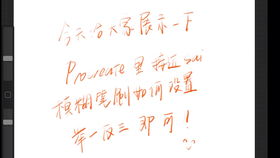 今天给大家展示一下
Procreate 里 接近 sai
模糊笔刷如何设置
举一反三 即可！